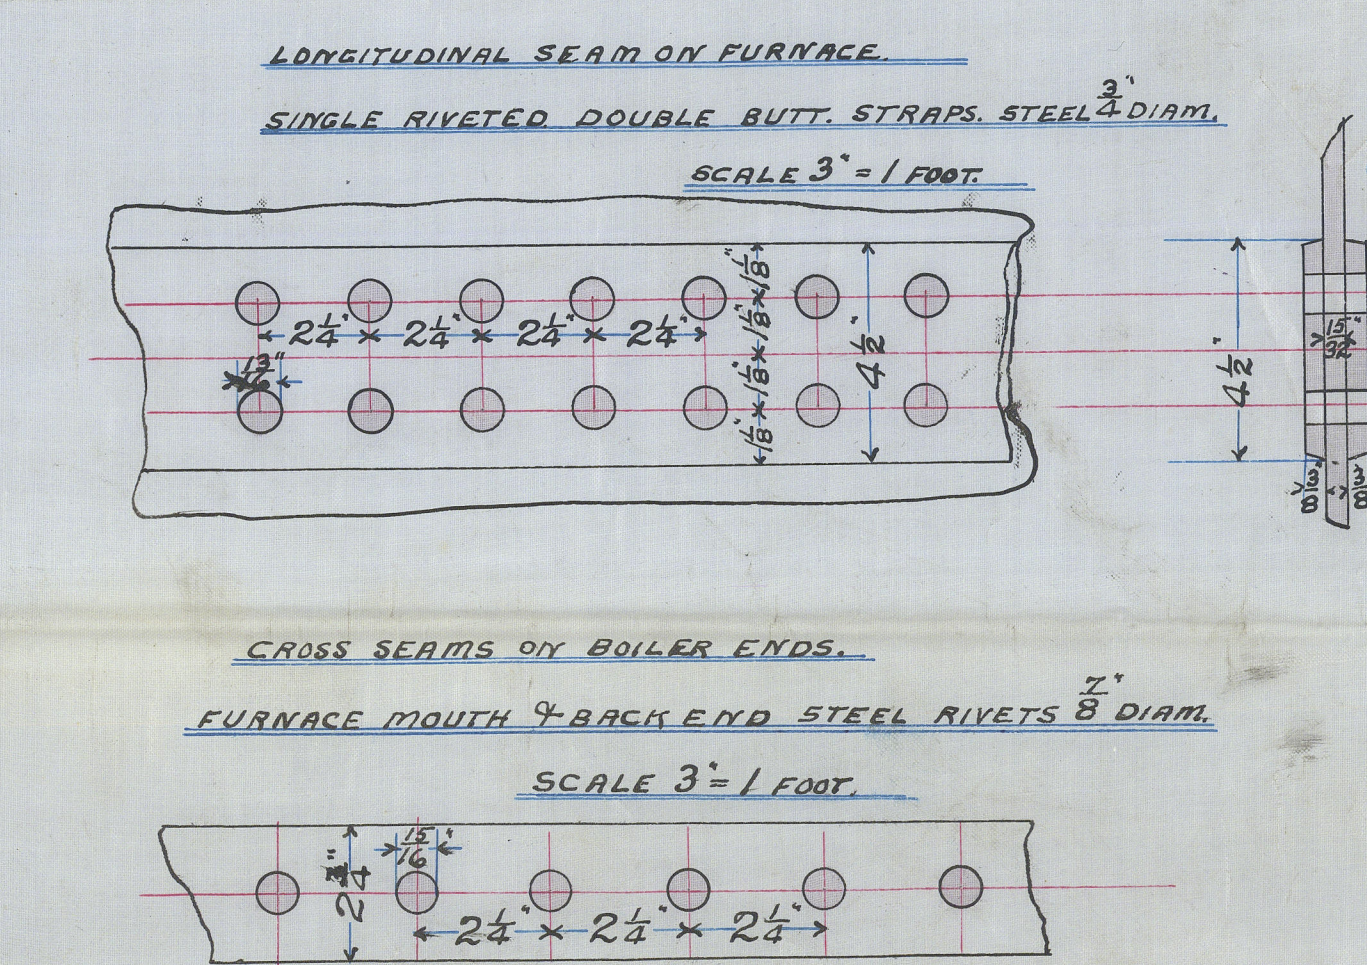 LONGITUDINAL SEAM ON FURNACE.
SINGLE RIVETED DOUBLE BUTT. STRAPS. STEEL 3/4" DIAM.
SCALE 3" = 1 FOOT.
2 1/4" 2 1/4" 2 1/4" 2 1/4"
13/16"
1 1/8" 1 1/8" 1 1/8" 1 1/8"
4 1/2"
4 1/2"
15/32"
3/8" 3/8
CROSS SEAMS ON BOILER ENDS.
FURNACE MOUTH & BACK END STEEL RIVETS 7/8" DIAM.
SCALE 3" = 1 FOOT.
15/16"
2 1/4" 2 1/4" 2 1/4"